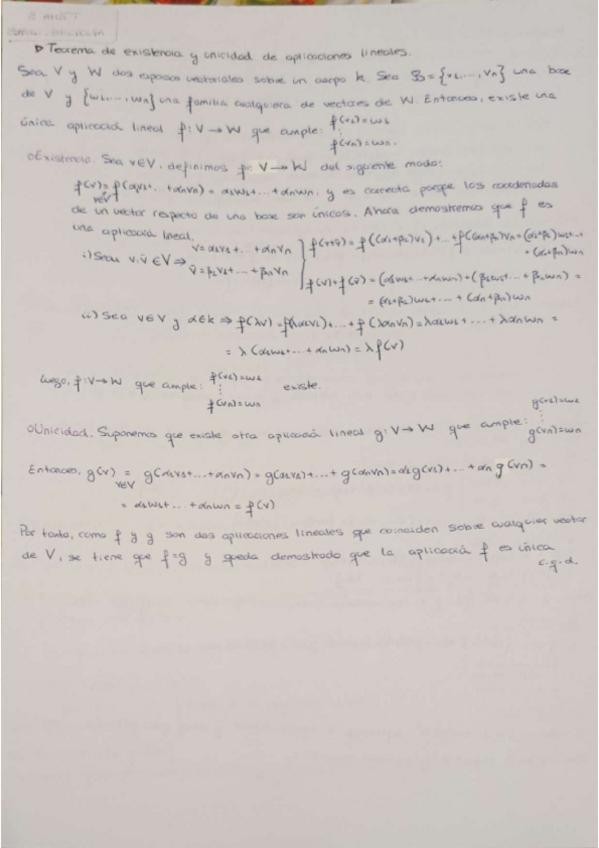 ▷ Teorema de existencia y unicidad de aplicaciones lineales.
Sea V y W dos espacios vectoriales sobre un cuerpo k. Sea B = {v₁,..., vₙ} una base
de V y {w₁,..., wₙ} una familia cualquiera de vectores de W. Entonces, existe una
única aplicació lineal f: V → W que cumple: f(v₁)=w₁ ⋮ f(vₙ)=wₙ.
○Existencia. Sea v∈V, definimos f: V → W del siguiente modo:
f(v) = f(α₁v₁+...+αₙvₙ) = α₁w₁+...+αₙwₙ, y es correcta porque las coordenadas
v∈V
de un vector respecto de una base son únicas. Ahora demostremos que f es
una aplicació lineal.
i) Sean v, ṽ ∈ V ⇒ v = α₁v₁+...+αₙvₙ
ṽ = β₁v₁+...+βₙvₙ
f(v+ṽ) = f((α₁+β₁)v₁)+...+f((αₙ+βₙ)vₙ) = (α₁+β₁)w₁+...+(αₙ+βₙ)wₙ
f(v)+f(ṽ) = (α₁w₁+...+αₙwₙ)+(β₁w₁+...+βₙwₙ) =
= (α₁+β₁)w₁+...+(αₙ+βₙ)wₙ
ii) Sea v∈V y α∈k ⇒ f(λv) = f(λα₁v₁)+...+f(λαₙvₙ) = λα₁w₁+...+λαₙwₙ =
= λ(α₁w₁+...+αₙwₙ) = λf(v)
Luego, f: V → W que cumple: f(v₁)=w₁ ⋮ f(vₙ)=wₙ existe.
○Unicidad. Suponemos que existe otra aplicació lineal g: V → W que cumple: g(v₁)=w₁ ⋮ g(vₙ)=wₙ
Entonces, g(v) = g(α₁v₁+...+αₙvₙ) = g(α₁v₁)+...+g(αₙvₙ) = α₁g(v₁)+...+αₙg(vₙ) =
v∈V
= α₁w₁+...+αₙwₙ = f(v)
Por tanto, como f y g son dos aplicaciones lineales que coinciden sobre cualquier vector
de V, se tiene que f=g y queda demostrado que la aplicació f es única
c.q.d.